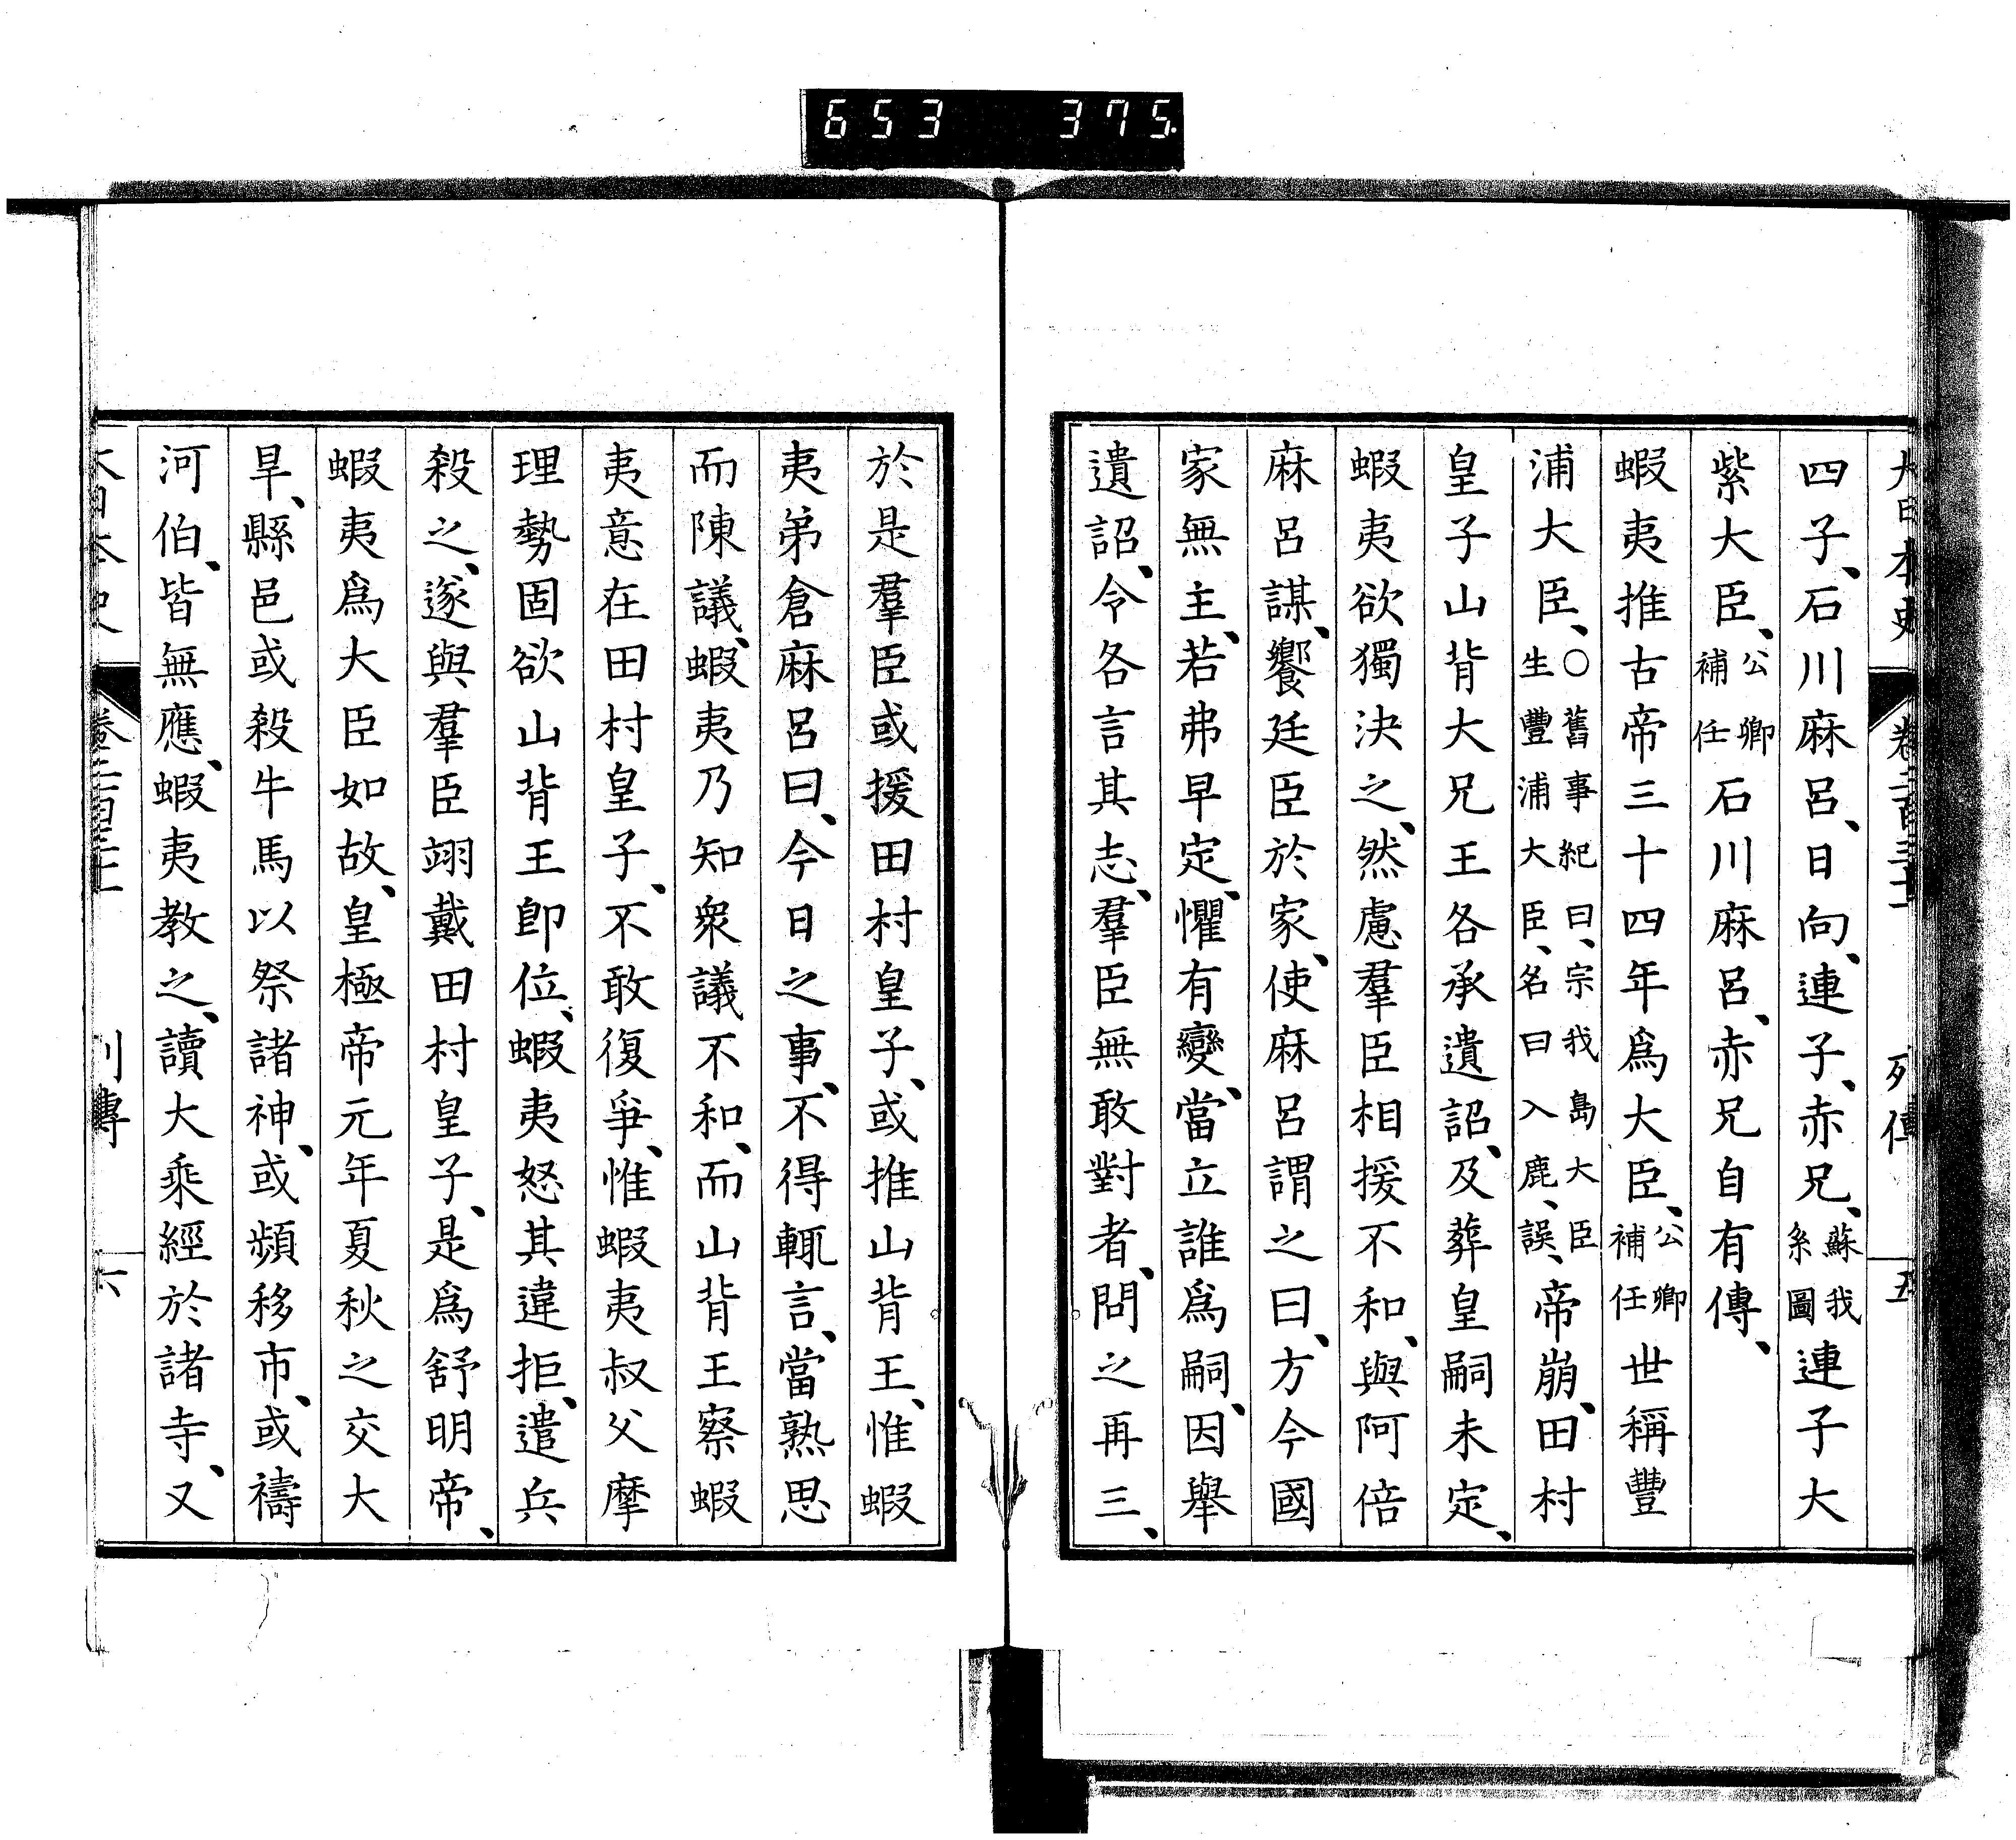 653 375
大日本史 卷二百三十一 列傳 五
四子、石川麻呂、日向、連子、赤兄、蘇我糸圖連子大
紫大臣、公卿補任石川麻呂、赤兄自有傳、
蝦夷推古帝三十四年爲大臣、公卿補任世稱豐
浦大臣、〇舊事紀曰、宗我島大臣生豐浦大臣、名曰入鹿、誤、帝崩、田村
皇子山背大兄王各承遺詔、及葬皇嗣未定、
蝦夷欲獨決之、然慮羣臣相援不和、與阿倍
麻呂謀、饗廷臣於家、使麻呂謂之曰、方今國
家無主、若弗早定、懼有變、當立誰爲嗣、因舉
遺詔、令各言其志、羣臣無敢對者、問之再三、
於是羣臣或援田村皇子、或推山背王、惟蝦
夷弟倉麻呂曰、今日之事、不得輒言、當熟思
而陳議、蝦夷乃知衆議不和、而山背王察蝦
夷意在田村皇子、不敢復爭、惟蝦夷叔父摩
理勢固欲山背王卽位、蝦夷怒其違拒、遣兵
殺之、遂與羣臣翊戴田村皇子、是爲舒明帝、
蝦夷爲大臣如故、皇極帝元年夏秋之交大
旱、縣邑或殺牛馬以祭諸神、或頻移市、或禱
河伯、皆無應、蝦夷教之、讀大乘經於諸寺、又
大日本史 卷二百三十一 列傳 六